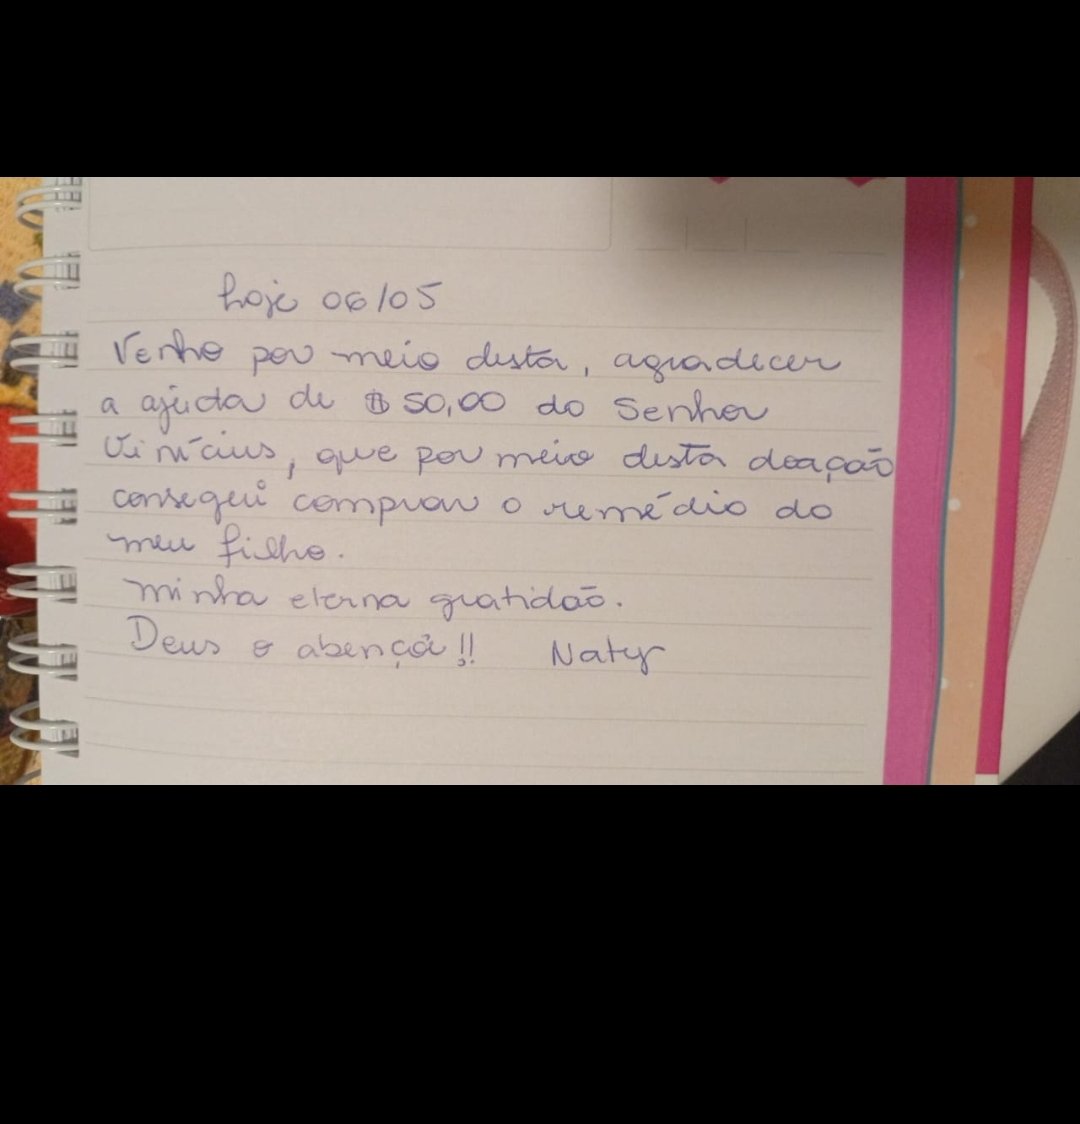 hoje 06/05
Venho por meio desta, agradecer
a ajuda de $ 50,00 do Senhor
Vinícius, que por meio desta doação
consegui comprar o remédio do
meu filho.
minha eterna gratidão.
Deus o abençoá!! Naty